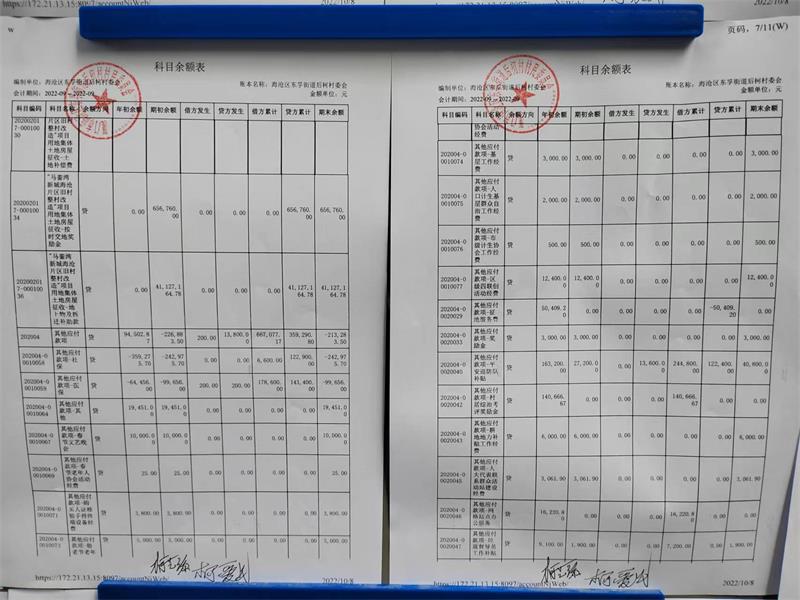 https://172.21.13.15:8097/accountNiWeb/
2022/10/8
页码，7/11(W)
科目余额表
编制单位：海沧区东孚街道后柯村委会
账本名称：海沧区东孚街道后柯村委会
会计期间：2022-09 - 2022-09
金额单位：元
科目编码 科目名称 余额方向 年初余额 期初余额 借方发生 贷方发生 借方累计 贷方累计 期末余额
20200201
7-0001000
30
片区旧村
整村改
造"项目
用地集体
土地房屋
征收-土
地补偿费
20200201
7-0001000
34
"马銮湾
新城海沧
片区旧村
整村改
造"项目
用地集体
土地房屋
征收-按
时交地奖
励金
贷 0.00 656,760.00 0.00 0.00 0.00 656,760.00 656,760.00
20200201
7-0001000
36
"马銮湾
新城海沧
片区旧村
整村改
造"项目
用地集体
土地房屋
征收-地
上物及拆
迁补助款
贷 0.00 41,127,164.78 0.00 0.00 0.00 41,127,164.78 41,127,164.78
202004 其他应付款项 贷 94,502.87 -226,883.50 200.00 13,800.00 667,077.17 359,290.80 -213,283.50
202004-00010058 其他应付款项-社保 贷 -359,275.70 -242,975.70 0.00 0.00 6,600.00 122,900.00 -242,975.70
202004-00010059 其他应付款项-医保 贷 -64,456.00 -99,656.00 200.00 200.00 178,600.00 143,400.00 -99,656.00
202004-00010064 其他应付款项-其他 贷 19,451.00 19,451.00 0.00 0.00 0.00 0.00 19,451.00
202004-00010067 其他应付款项-春节文艺晚会 贷 10,000.00 10,000.00 0.00 0.00 0.00 0.00 10,000.00
202004-00010069 其他应付款项-春节老年人协会活动经费 贷 25.00 25.00 0.00 0.00 0.00 0.00 25.00
202004-00010071 贷 3,800.00 3,800.00 0.00 0.00 0.00 0.00 3,800.00
202004-00010073 贷 3,000.00 3,000.00 0.00 0.00 0.00 0.00 3,000.00
https://172.21.13.15:8097/accountNiWeb/
2022/10/8
科目余额表
编制单位：海沧区东孚街道后柯村委会
账本名称：海沧区东孚街道后柯村委会
会计期间：2022-09 - 2022-09
金额单位：元
科目编码 科目名称 余额方向 年初余额 期初余额 借方发生 贷方发生 借方累计 贷方累计 期末余额
协会活动经费
202004-00010074 其他应付款项-基层工作经费 贷 3,000.00 3,000.00 0.00 0.00 0.00 0.00 3,000.00
202004-00010075 其他应付款项-人口计生基层群众自治工作经费 贷 2,000.00 2,000.00 0.00 0.00 0.00 0.00 2,000.00
202004-00010076 其他应付款项-市级计生协会工作经费 贷 500.00 500.00 0.00 0.00 0.00 0.00 500.00
202004-00010077 其他应付款项-区级四联创活动经费 贷 12,400.00 12,400.00 0.00 0.00 0.00 0.00 12,400.00
202004-00020029 其他应付款项-征地服务费 贷 50,409.20 0.00 0.00 0.00 0.00 -50,409.20 0.00
202004-00020033 其他应付款项-奖励金 贷 3,000.00 3,000.00 0.00 0.00 0.00 0.00 3,000.00
202004-00020040 其他应付款项-平安巡防队补贴 贷 163,200.00 27,200.00 0.00 13,600.00 244,800.00 122,400.00 40,800.00
202004-00020042 其他应付款项-村居综治考评奖励金 贷 140,666.67 0.00 0.00 0.00 140,666.67 0.00 0.00
202004-00020043 其他应付款项-耕地地力补贴工作经费 贷 6,000.00 6,000.00 0.00 0.00 0.00 0.00 6,000.00
202004-00020045 其他应付款项-人大代表联系群众活动站建设经费 贷 3,061.90 3,061.90 0.00 0.00 0.00 0.00 3,061.90
202004-00020046 其他应付款项-网格站点办公服务 贷 16,220.80 0.00 0.00 0.00 16,220.80 0.00 0.00
202004-00020047 贷 9,100.00 1,900.00 0.00 0.00 7,200.00 0.00 1,900.00
https://172.21.13.15:8097/accountNiWeb/
2022/10/8